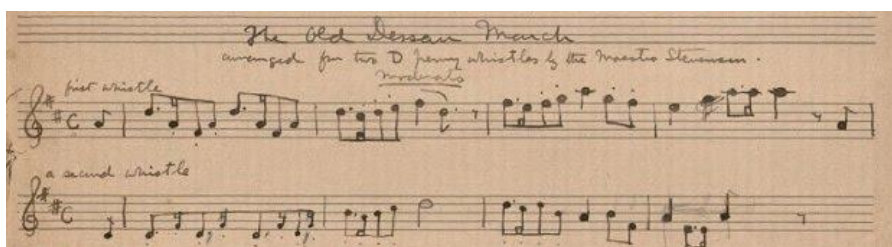 The Old Dessau March
arranged for two D penny whistles by the Maestro Stevenson.
moderato
first whistle
a second whistle